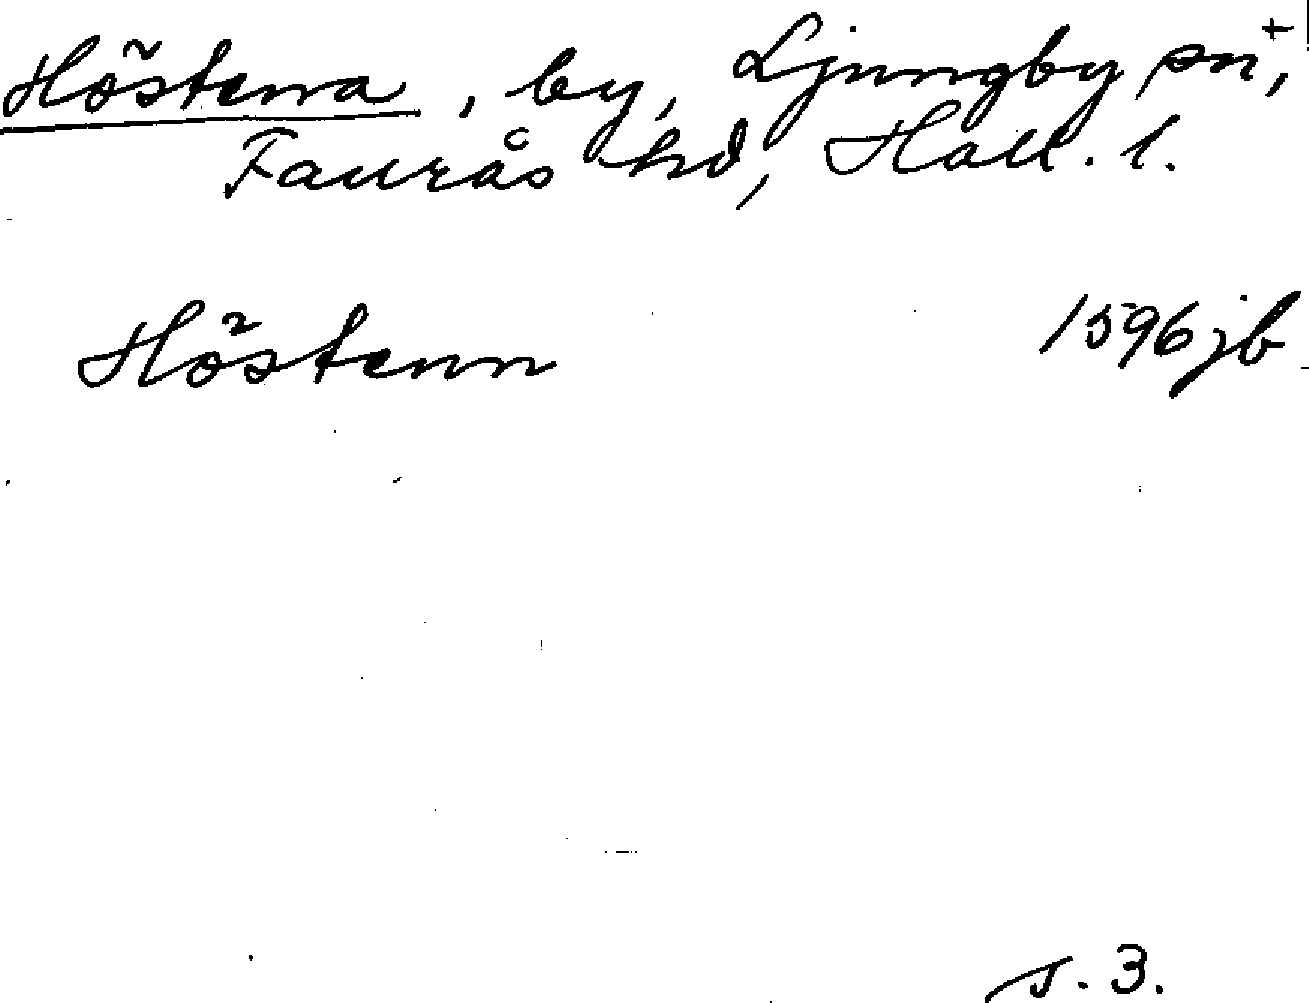 Höstena, by, Ljungby sn,+
Faurås hd, Hall. l.
Höstenn 1596 jb
s. 3.